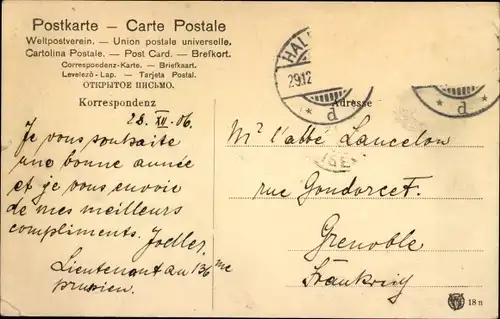 Postkarte – Carte Postale
Weltpostverein. – Union postale universelle.
Cartolina Postale. – Post Card. – Brefkort.
Correspondenz-Karte. – Briefkaart.
Levelező-Lap. – Tarjeta Postal.
ОТКРЫТОЕ ПИСЬМО.
Korrespondenz
Adresse
28. XII. 06.
Je vous souhaite
une bonne année
et je vous envoie
de mes meilleurs
compliments. Jodler,
Lieutenant au 136 me
prussien.
HAL
29.12
* d *
* d *
Mr l'abbé Lancelon
rue Gondorcet.
Grenoble
Frankrig
18 n